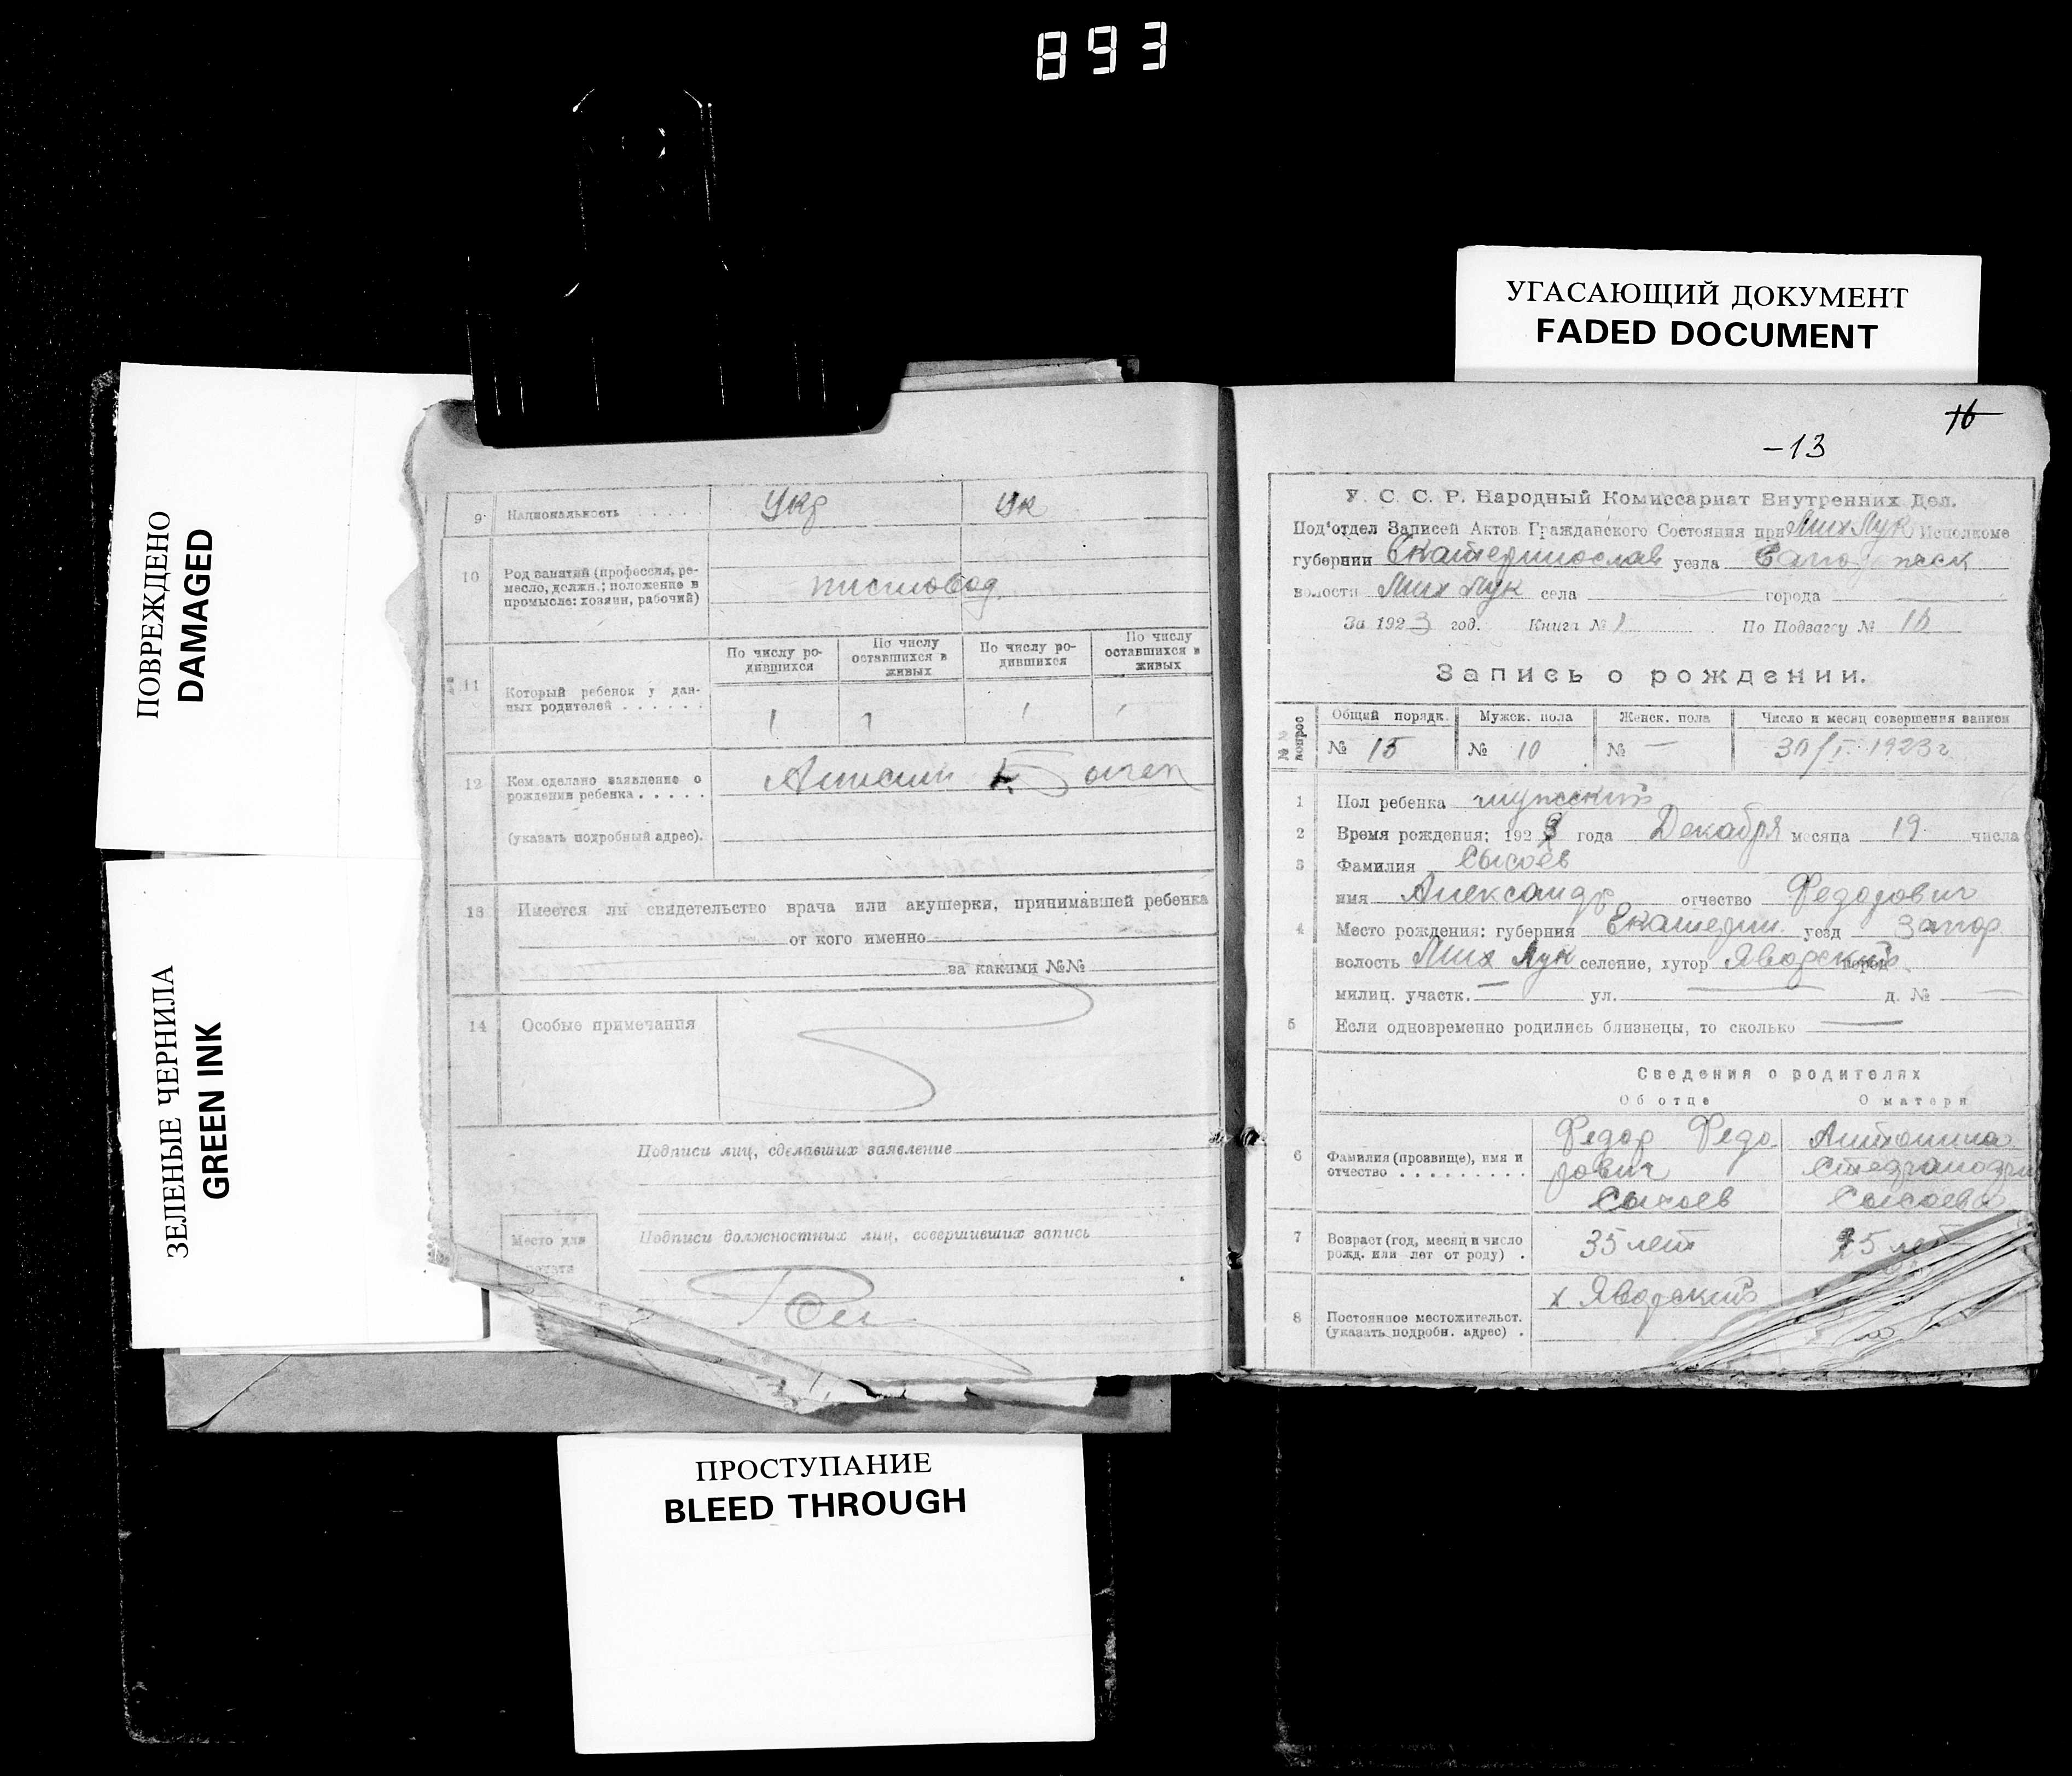 893
УГАСАЮЩИЙ ДОКУМЕНТ
FADED DOCUMENT
ПОВРЕЖДЕНО
DAMAGED
ЗЕЛЕНЫЕ ЧЕРНИЛА
GREEN INK
9 Национальность . . . . . Укр Ук
10 Род занятий (профессия, ре-
месло, должн.; положение в
промысле: хозяин, рабочий)
По числу ро-
дившихся
По числу
оставшихся в
живых
По числу ро-
дившихся
По числу
оставшихся в
живых
11 Который ребенок у дан-
ных родителей . . . . . . 1 1 1 1
12 Кем сделано заявление о
рождении ребенка . . . . .
(указать подробный адрес).
13 Имеется ли свидетельство врача или акушерки, принимавшей ребенка
от кого именно
за какими №№
14 Особые примечания
Подписи лиц, сделавших заявление
Подписи должностных лиц, совершивших запись
Место для
печати
16
-13
У. С. С. Р. Народный Комиссариат Внутренних Дел.
Под'отдел Записей Актов Гражданского Состояния при Мих Лук Исполкоме
губернии Екатеринослав уезда
волости Мих Лук села города
За 1923 год. Книга № 1 По Подзагсу № 16
Запись о рождении.
№№ вопрос
Общий порядк. Мужск. пола Женск. пола Число и месяц совершения записи
№ 15 № 10 № — 30/I 1923 г
1 Пол ребенка мужский
2 Время рождения: 192 года Декабря месяца 19 числа
3 Фамилия Сысоев
имя Александр отчество Федорович
4 Место рождения: губерния Екатерин. уезд Запор.
волость Мих Лук селение, хутор Яворский
милиц. участк. — ул. — д. № —
5 Если одновременно родились близнецы, то сколько —
Сведения о родителях
Об отце О матери
6 Фамилия (прозвище), имя и
отчество . . . . . . . . .
Федор Федо
рович
Сысоев
Антонина
Сысоева
7 Возраст (год, месяц и число
рожд. или лет от роду) . 35 лет 25 лет
8 Постоянное местожительст.
(указать подробн. адрес) .
х Яворский
ПРОСТУПАНИЕ
BLEED THROUGH